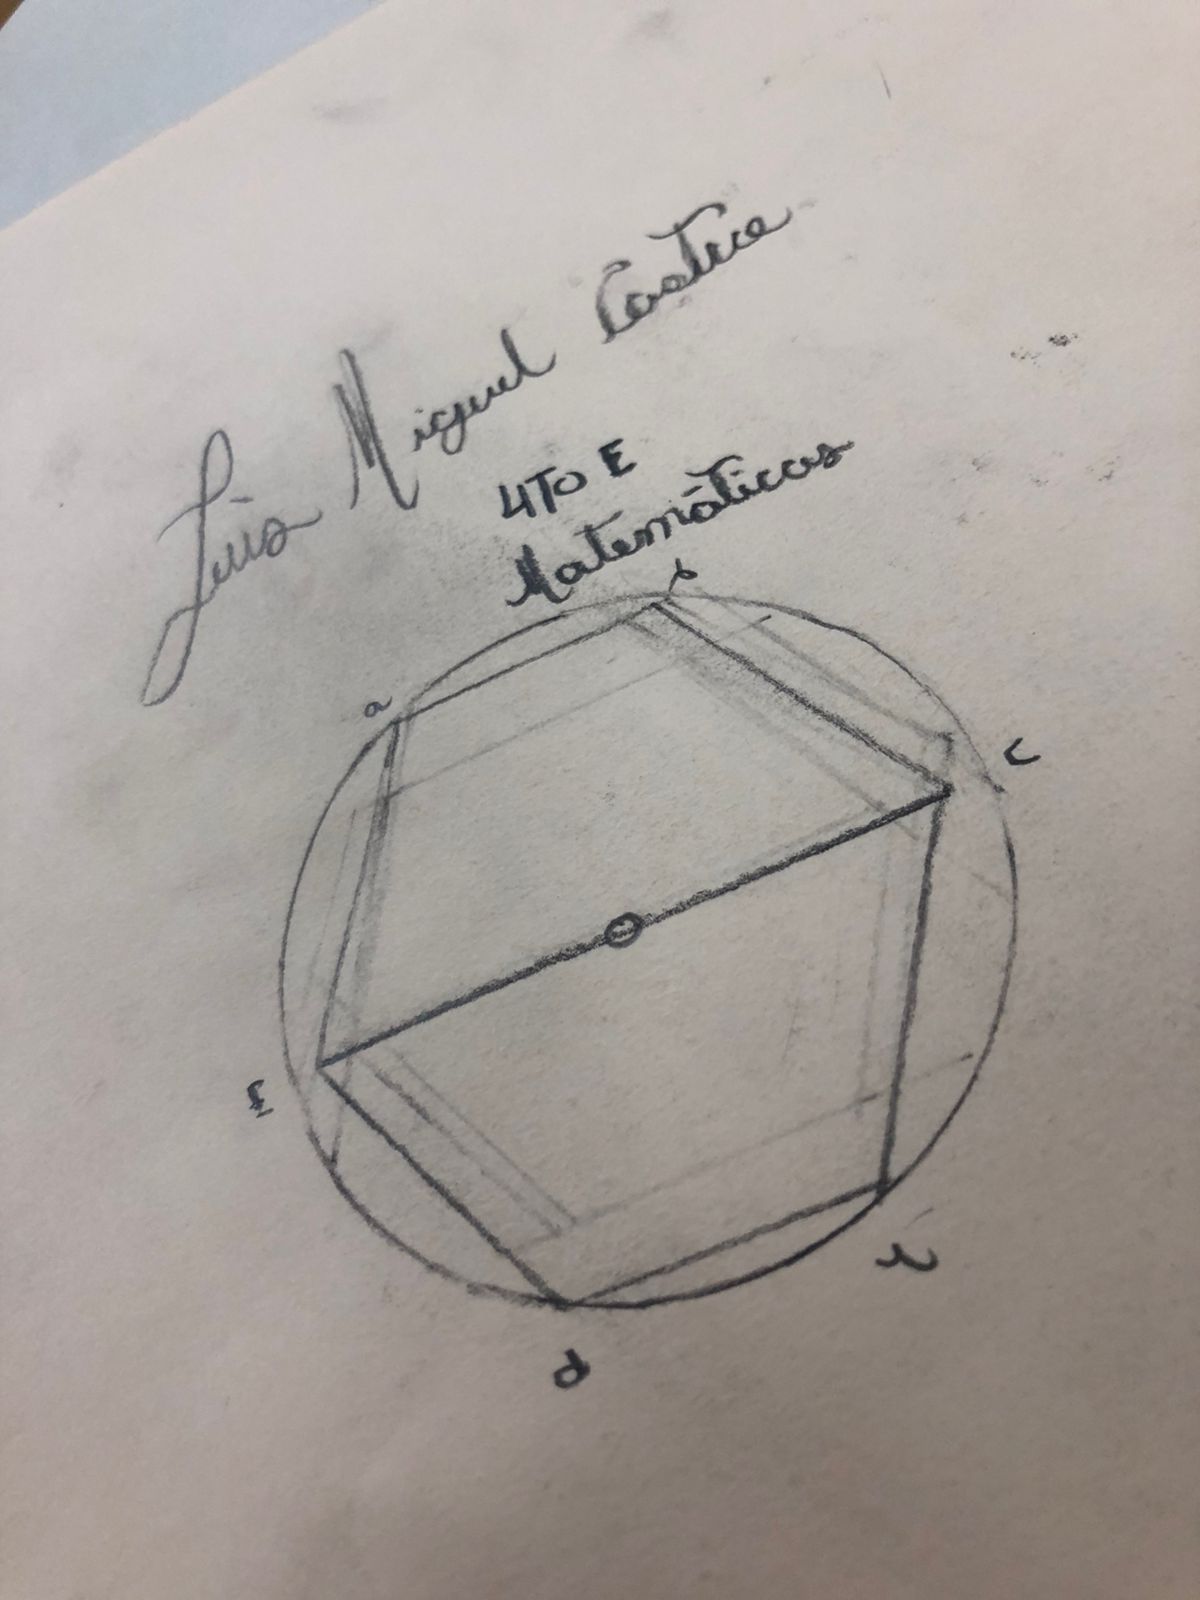 Luis Miguel Castro
4TO E
Matemáticas
b
a
c
f
e
d